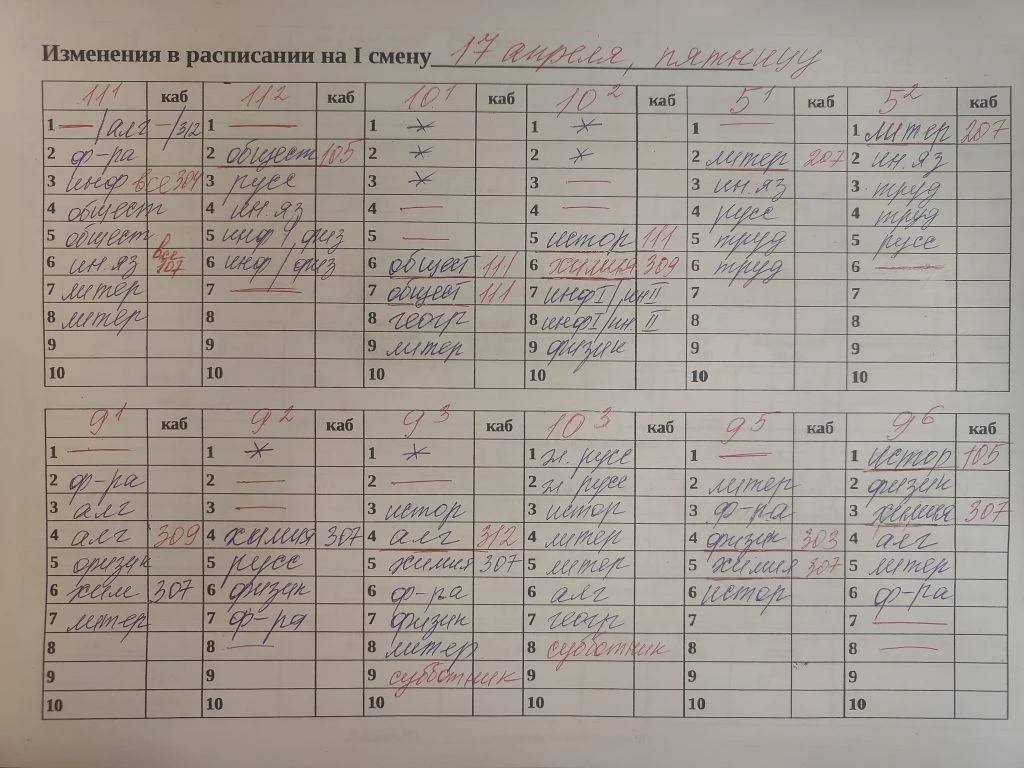 Изменения в расписании на I смену 17 апреля, пятницу
11¹ каб 11² каб 10¹ каб 10² каб 5¹ каб 5² каб
1 — /алг —/312 1 — 1 * 1 * 1 — 1 литер 207
2 ф-ра 2 общест 105 2 * 2 * 2 литер 207 2 ин.яз
3 инф все 304 3 русс 3 * 3 — 3 ин.яз 3 труд
4 общест 4 ин.яз 4 — 4 — 4 русс 4 труд
5 общест 5 инф / физ 5 — 5 истор 111 5 труд 5 русс
6 ин.яз все 307 6 инф / физ 6 общест 111 6 химия 309 6 труд 6 —
7 литер 7 — 7 общест 111 7 инф I / ин II 7 7
8 литер 8 8 геогр 8 инф I / ин. II 8 8
9 9 9 литер 9 физик 9 9
10 10 10 10 10 10
9¹ каб 9² каб 9³ каб 10³ каб 9⁵ каб 9⁶ каб
1 — 1 * 1 * 1 эл. русс 1 — 1 истор 105
2 ф-ра 2 — 2 — 2 эл. русс 2 литер 2 физик
3 алг 3 — 3 истор 3 истор 3 ф-ра 3 химия 307
4 алг 309 4 химия 307 4 алг 312 4 литер 4 физик 303 4 алг
5 физик 5 русс 5 химия 307 5 литер 5 химия 307 5 литер
6 хим 307 6 физик 6 ф-ра 6 алг 6 истор 6 ф-ра
7 литер 7 ф-ра 7 физик 7 геогр 7 7 —
8 8 — 8 литер 8 субботник 8 8 —
9 9 9 субботник 9 9 9
10 10 10 10 10 10